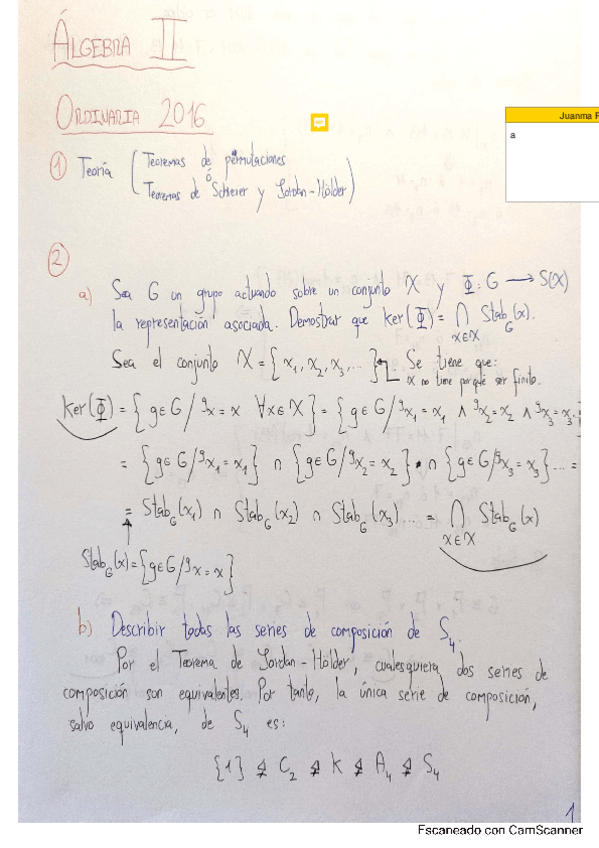 ÁLGEBRA II
ORDINARIA 2016
Juanma
a
① Teoría (Teoremas de permutaciones
ó
Teoremas de Schreier y Jordan-Hölder)
②
a) Sea G un grupo actuando sobre un conjunto X y Φ: G → S(X)
la representación asociada. Demostrar que ker(Φ) = ⋂ Stab_G(x).
x∈X
Sea el conjunto X = {x₁, x₂, x₃, ...} Se tiene que:
X no tiene porqué ser finito.
Ker(Φ) = {g∈G / ᵍx = x ∀x∈X} = {g∈G / ᵍx₁ = x₁ ∧ ᵍx₂ = x₂ ∧ ᵍx₃ = x₃
= {g∈G / ᵍx₁ = x₁} ∩ {g∈G / ᵍx₂ = x₂} ∩ {g∈G / ᵍx₃ = x₃} ... =
= Stab_G(x₁) ∩ Stab_G(x₂) ∩ Stab_G(x₃) ... = ⋂ Stab_G(x)
x∈X
Stab_G(x) = {g∈G / ᵍx = x}
b) Describir todas las series de composición de S₄.
Por el Teorema de Jordan-Hölder, cualesquiera dos series de
composición son equivalentes. Por tanto, la única serie de composición,
salvo equivalencia, de S₄ es:
{1} ⋬ C₂ ⋬ K ⋬ A₄ ⋬ S₄
1
Escaneado con CamScanner